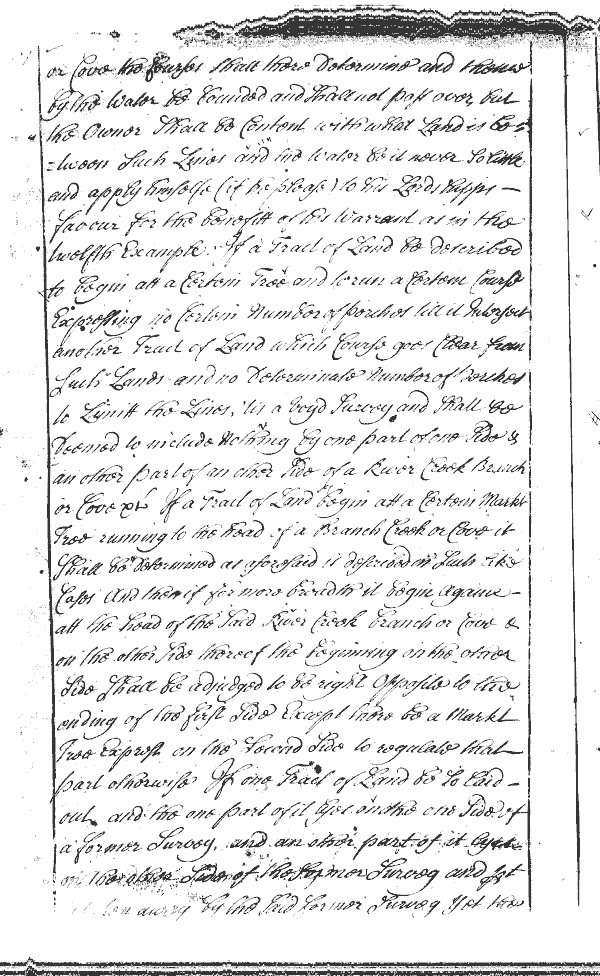 or Cove the Courses shall there Determine and thence
by the Water be bounded and shall not pass over, but
the Owner shall be Content with what Land is be=
=tween Such Lines and the Water be it never so little
and apply himselfe (if he please) to his Lordshipps –
favour for the benefitt of his Warrant as in the
twelfth Example. If a Tract of Land be described
to begin att a Certein Tree and to run a Certein Course
Expressing no Certein Number of perches till it Intersect
another Tract of Land which Course goes Clear from
Such Lands and no Determinate Number of Perches
to Limitt the Lines, tis a voyd Survey and shall be
Deemed to include Nothing by one part of one Side &
an other part of an other Side of a River Creek Branch
or Cove If a Tract of Land begin att a Certein Markt
Tree running to the head of a Branch Creek or Cove it
Shall be Determined as aforesaid is described in Such like
Cases And then if for more breadth it begin Againe –
att the head of the Said River Creek branch or Cove &
on the other Side thereof the beginning on the other
Side Shall be adjudged to be right Opposite to the
ending of the first Side Except there be a Markt
Tree Exprest on the Second Side to regulate that
part otherwise If one Tract of Land be so laid –
out and the one part of it lyes on the one Side of
a former Survey, and an other part of it lyes
on the other Side of the former Survey and
away by the Said former Survey Yet the